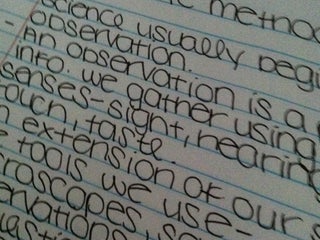 metho
science usually begi
observation.
- An observation is a
info. we gather using
senses-sight, hearing
touch, taste.
extension of our s
tools we use-